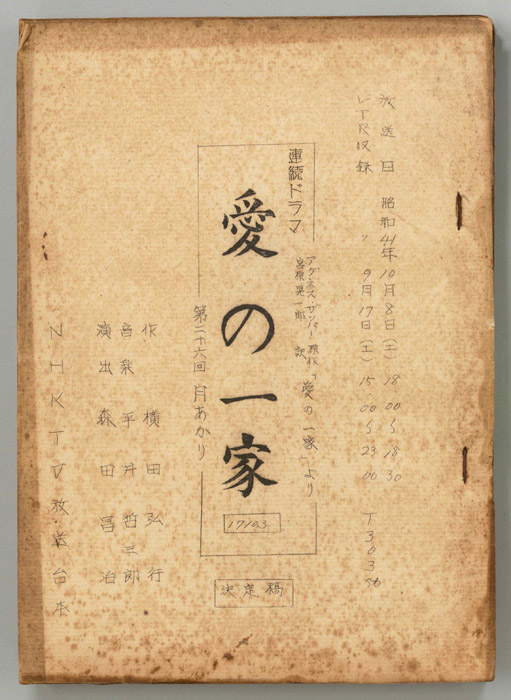 放送日 昭和41年10月8日(土) 18 00〜18 30
VTR収録 〃 9月17日(土) 15 00〜23 00 T303
連続ドラマ
アグネス・ザッパー 原作「愛の一家」より
宮原晃一郎 訳
愛の一家
17103
第二十六回 月あかり
決定稿
作 横田弘行
音楽 平井哲三郎
演出 森田昌治
NHKTV放送台本